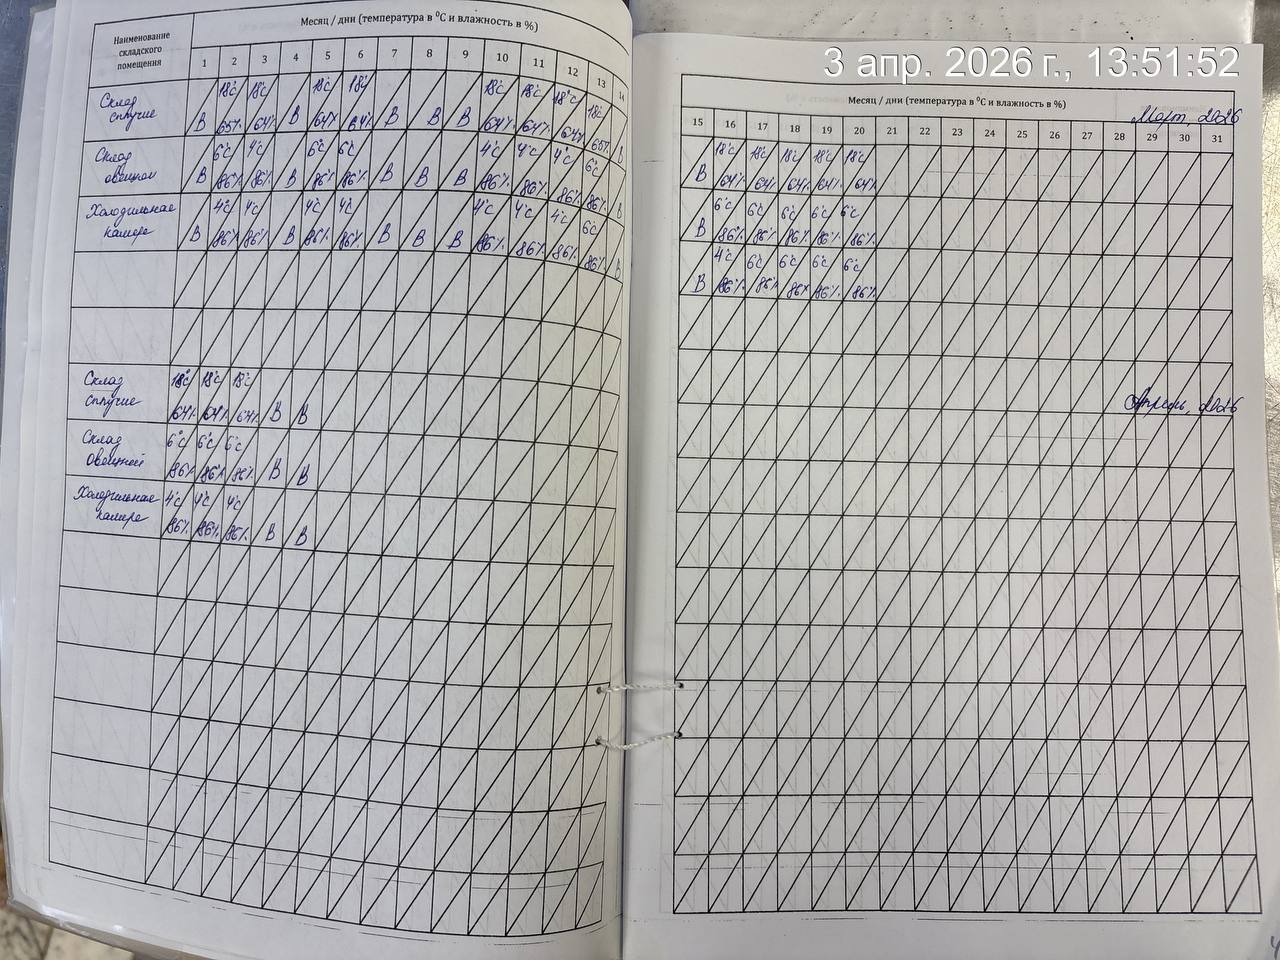 3 апр. 2026 г., 13:51:52
Наименование складского помещения
Месяц / дни (температура в ⁰С и влажность в %)
1 2 3 4 5 6 7 8 9 10 11 12 13 14
Склад сыпучие
В 18°С 65% 18°С 64% В 18°С 64% 18°С 64% В В В 18°С 64% 18°С 64% 18°С 64% 18°С 65% В
Склад овощной
В 6°С 86% 4°С 86% В 6°С 86% 6°С 86% В В В 4°С 86% 4°С 86% 4°С 86% 6°С 86% В
Холодильная камера
В 4°С 86% 4°С 86% В 4°С 86% 4°С 86% В В В 4°С 86% 4°С 86% 4°С 86% 6°С 86% В
Склад сыпучие
18°С 64% 18°С 64% 18°С 64% В В
Склад овощной
6°С 86% 6°С 86% 6°С 86% В В
Холодильная камера
4°С 86% 4°С 86% 4°С 86% В В
Месяц / дни (температура в ⁰С и влажность в %)
Март 2026
15 16 17 18 19 20 21 22 23 24 25 26 27 28 29 30 31
В 18°С 64% 18°С 64% 18°С 64% 18°С 64% 18°С 64%
В 6°С 86% 6°С 86% 6°С 86% 6°С 86% 6°С 86%
В 4°С 86% 6°С 86% 6°С 86% 6°С 86% 6°С 86%
Апрель, 2026